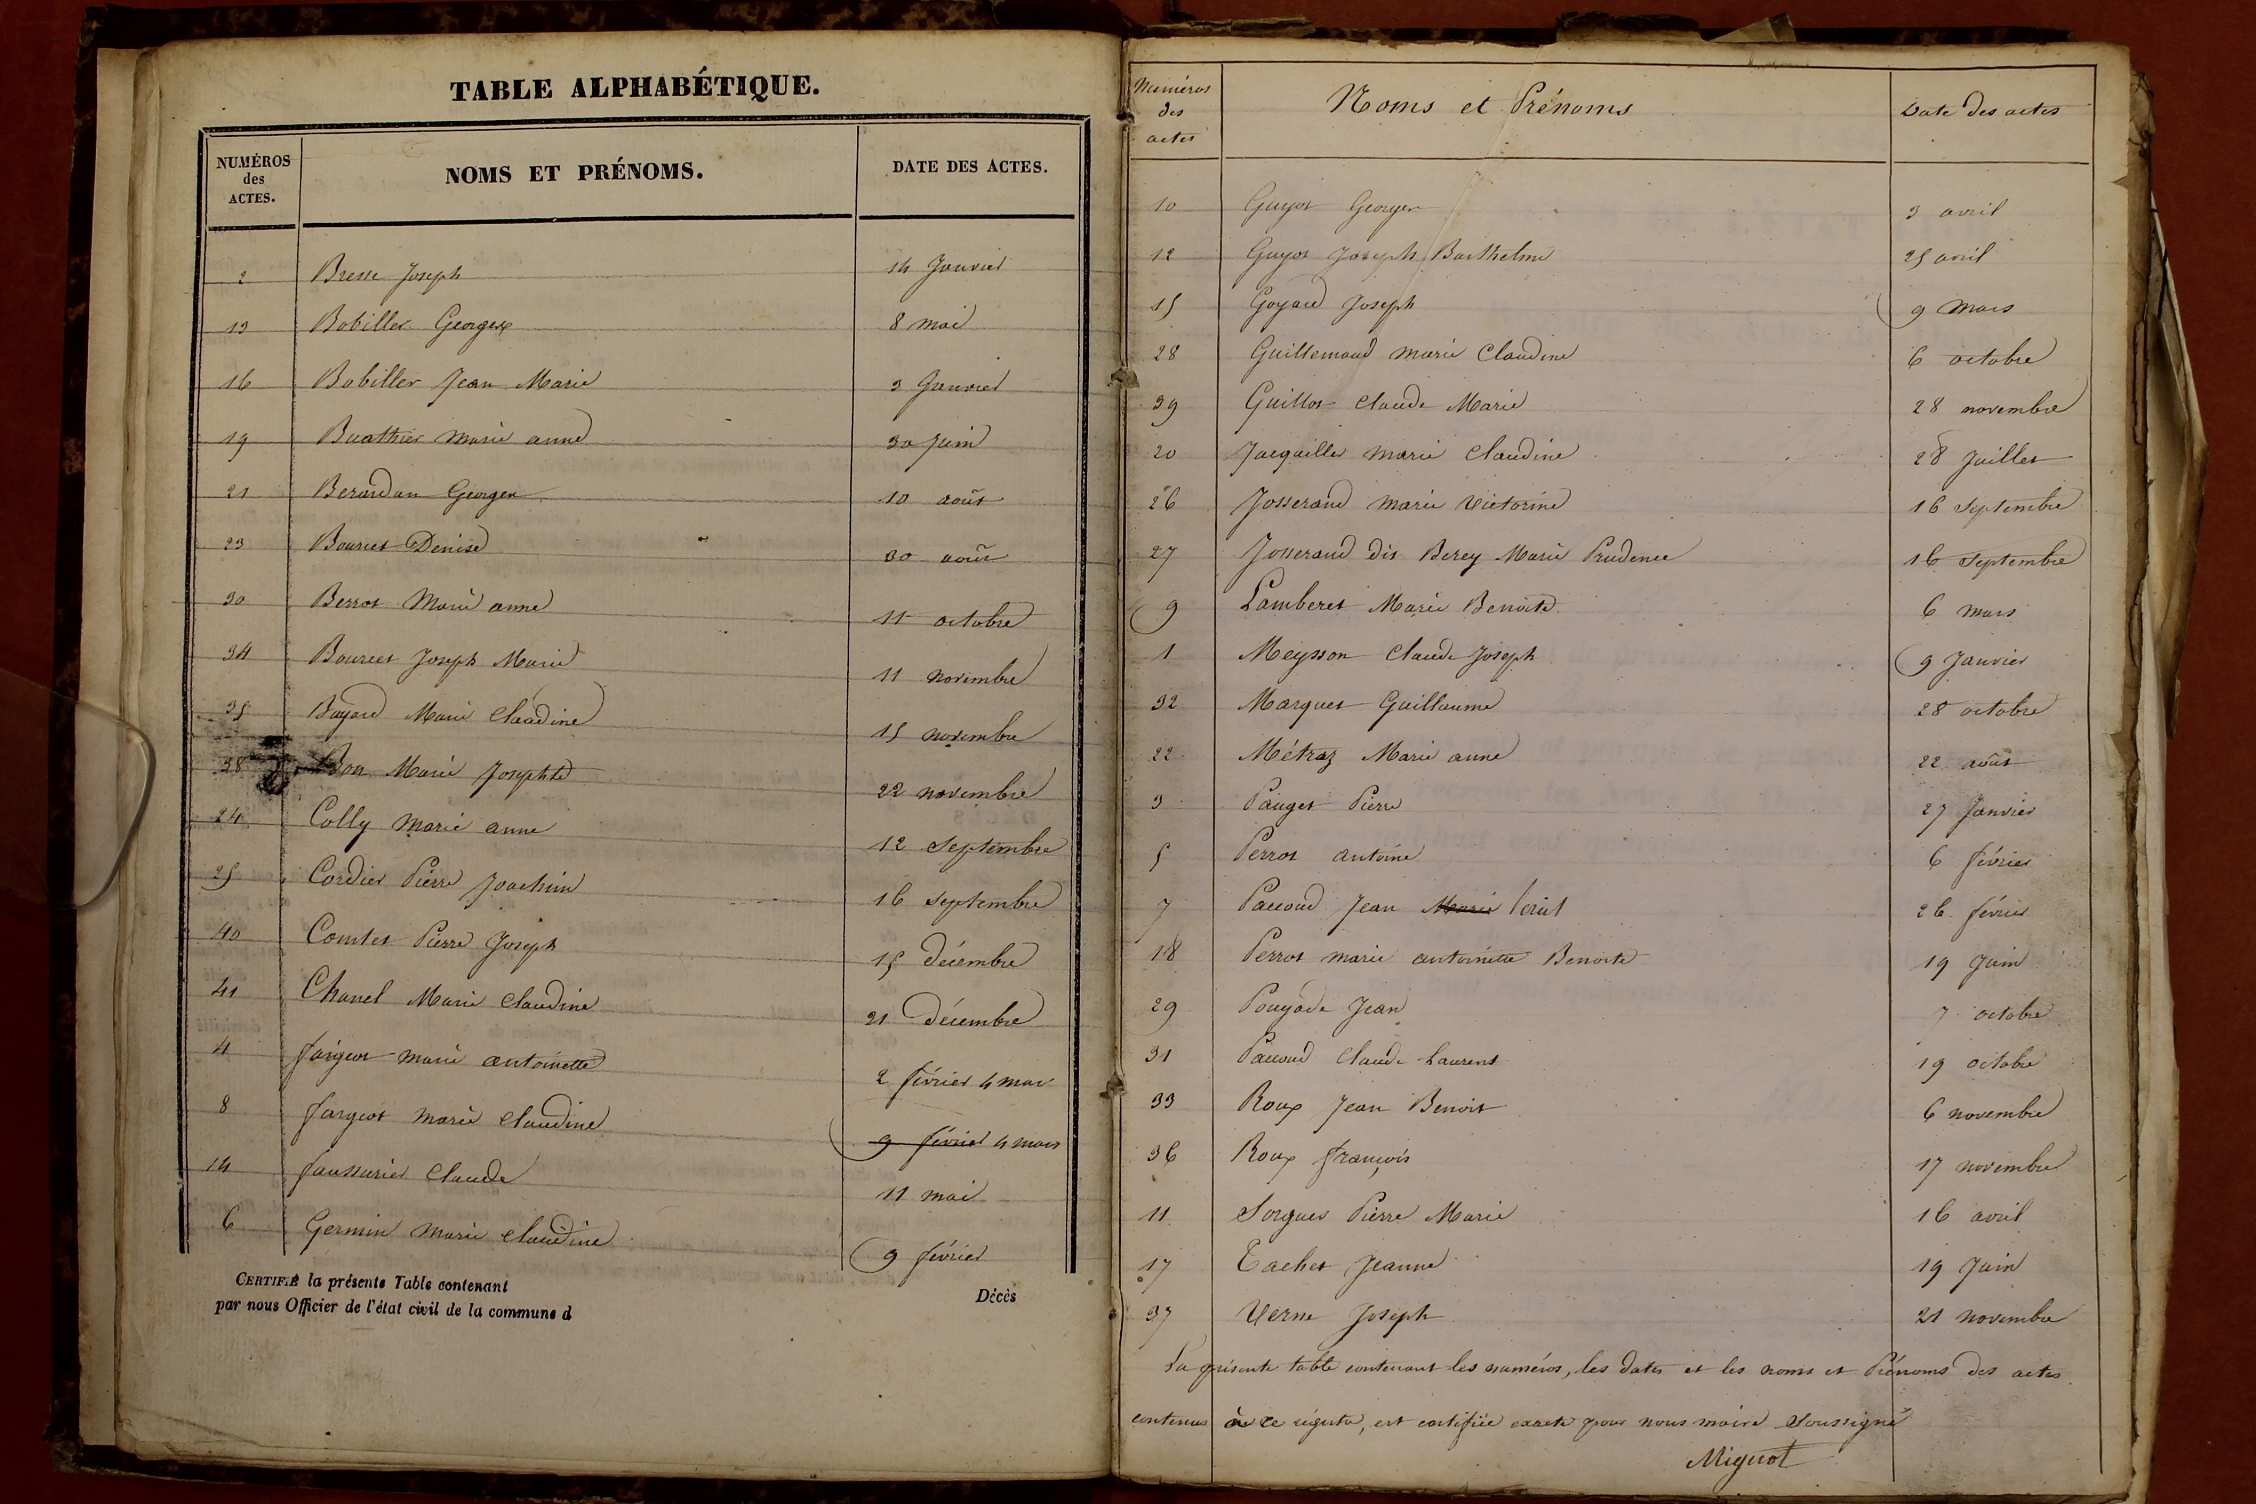 TABLE ALPHABÉTIQUE.
NUMÉROS des ACTES. NOMS ET PRÉNOMS. DATE DES ACTES.
2 Bresse Joseph 14 Janvier
13 Bobiller Georges 8 mai
16 Bobiller Jean Marie 3 Janvier
19 Buathier marie anne 30 Juin
21 Berardan Georges 10 août
23 Bourcet Denise 30 août
30 Berrot Marie anne 11 octobre
34 Bourcet Joseph Marie 11 novembre
35 Bayard Marie Claudine 15 novembre
38 Bon Marie Josephte 22 novembre
24 Colly marie anne 12 Septembre
25 Cordier Pierre Joachim 16 Septembre
40 Comtet Pierre Joseph 15 décembre
41 Chanel Marie Claudine 21 décembre
4 fargeot marie antoinette 2 février 4 mar
8 fargeot marie claudine 9 février 4 mars
14 faussurier Claude 11 mai
6 Germin marie claudine 9 février
CERTIFIÉ la présente Table contenant Décès
par nous Officier de l'état civil de la commune d
Numéros des actes Noms et Prénoms Date des actes
10 Guyot Georges 3 avril
12 Guyot Joseph Barthelmi 25 avril
15 Goyard Joseph 9 mars
28 Guillemaud marie Claudine 6 octobre
39 Guillot claude Marie 28 novembre
20 Jacquiller marie Claudine 28 Juillet
26 Josserand marie victorine 16 Septembre
27 Josserand dit Berey Marie Prudence 16 Septembre
9 Lamberet Marie Benoite 6 mars
1 Meysson Claude Joseph 9 Janvier
32 Marquet Guillaume 28 octobre
22 Métraz Marie anne 22 août
3 Pauget Pierre 27 Janvier
5 Perrot antoine 6 février
7 Paccoud Jean Marie 26 février
18 Perrot marie antoinette Benoite 19 Juin
29 Pouyade Jean 7 octobre
31 Paccoud Claude Laurent 19 octobre
33 Roux Jean Benoit 6 novembre
36 Roux françois 17 novembre
11 Sorgues Pierre Marie 16 avril
17 Tachet Jeanne 19 Juin
37 Verne Joseph 21 novembre
La présente table contenant les numéros, les dates et les noms et Prénoms des actes
contenus à ce registre, est certifiée exacte pour nous maire Soussigné
Miguot